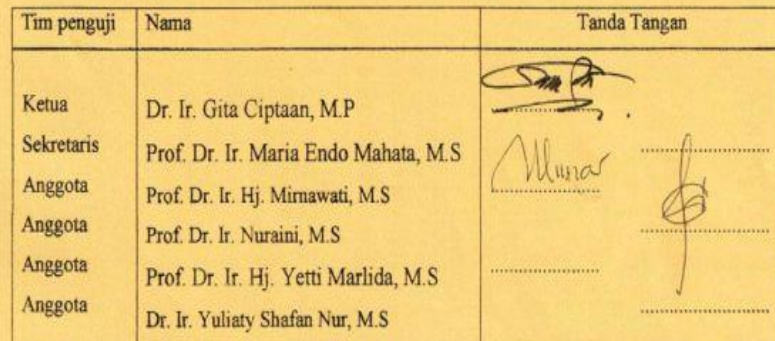 Tim penguji Nama Tanda Tangan
Ketua Dr. Ir. Gita Ciptaan, M.P
Sekretaris Prof. Dr. Ir. Maria Endo Mahata, M.S
Anggota Prof. Dr. Ir. Hj. Mirnawati, M.S
Anggota Prof. Dr. Ir. Nuraini, M.S
Anggota Prof. Dr. Ir. Hj. Yetti Marlida, M.S
Anggota Dr. Ir. Yuliaty Shafan Nur, M.S